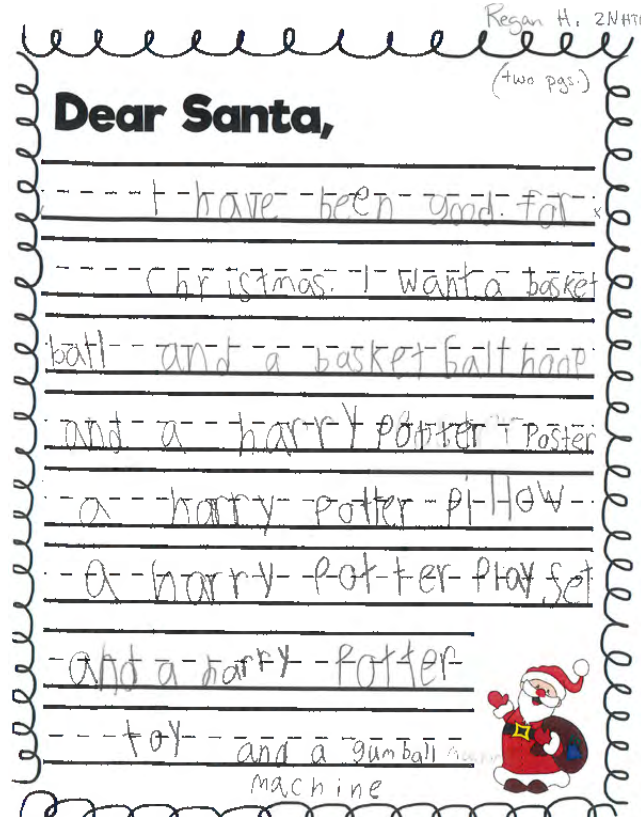 Regan H. 2NHTH
(two pgs.)
Dear Santa,
I have been good. for
christmas. I want a basket
ball and a basket ball hoop
and a harry potter poster
a harry potter pillow
a harry potter play set
and a harry potter
toy and a gumball
machine